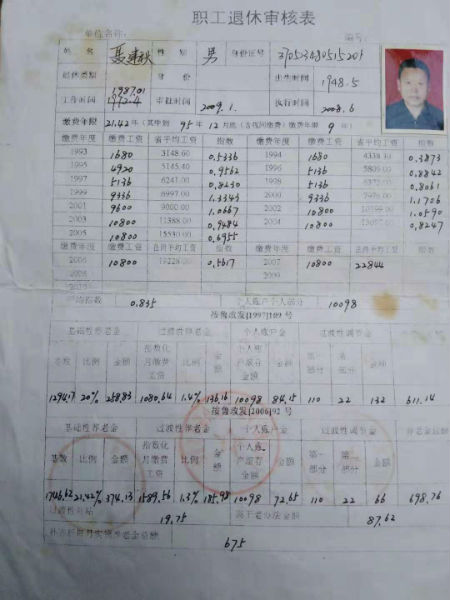 职工退休审核表
单位名称: 编号:
姓名 性别 男 身份证号
退休类别 身份 出生时间 1948.5
1987.01
工作时间 1972.4 审批时间 2009.1. 执行时间 2008.6
缴费年限 21.42年(其中到95年12月底(含视同缴费)缴费年限 9年)
缴费年度 缴费工资 省平均工资 指数 缴费年度 缴费工资 省平均工资 指数
1993 1680 3148.60 0.5336 1994 1680 4338.40 0.3873
1995 4920 5145.40 0.9562 1996 5136 5809.00 0.8842
1997 5136 6241.00 0.8230 1998 5136 0.8061
1999 9336 6997.00 1.3343 2000 9336 7976.00 1.1706
2001 9600 9000.00 1.0667 2002 10800 1.0590
2003 10800 11388.00 0.9484 2004 10800 0.8247
2005 10800 15530.00 0.6955
缴费年度 缴费工资 指数 缴费年度 缴费工资 指数
2006 10800 19228.00 0.5617 2007 10800 22844
2008 2009
平均指数 0.835 个人账户个人部分 10098
按鲁改发[1997]109号
基础性养老金 过渡性养老金 个人账户金 过渡性调节金
基数 比例 金额 指数化月缴费工资 比例 金额 个人账户储存金额 金额 第一部分 第二部分 金额
1294.17 20% 258.83 1080.64 1.4% 136.16 10098 84.15 110 22 132 611.14
按鲁改发[2006]92号
基础性养老金 过渡性养老金 个人账户金 过渡性调节金 养老金总额
基数 比例 金额 指数化月缴费工资 比例 金额 个人账户储存金额 金额 第一部分 第二部分 金额
1746.62 21.42% 374.13 1589.56 1.3% 185.98 10098 72.65 110 22 66 698.76
过渡性补贴 19.75 高于老办法金额 87.62
675